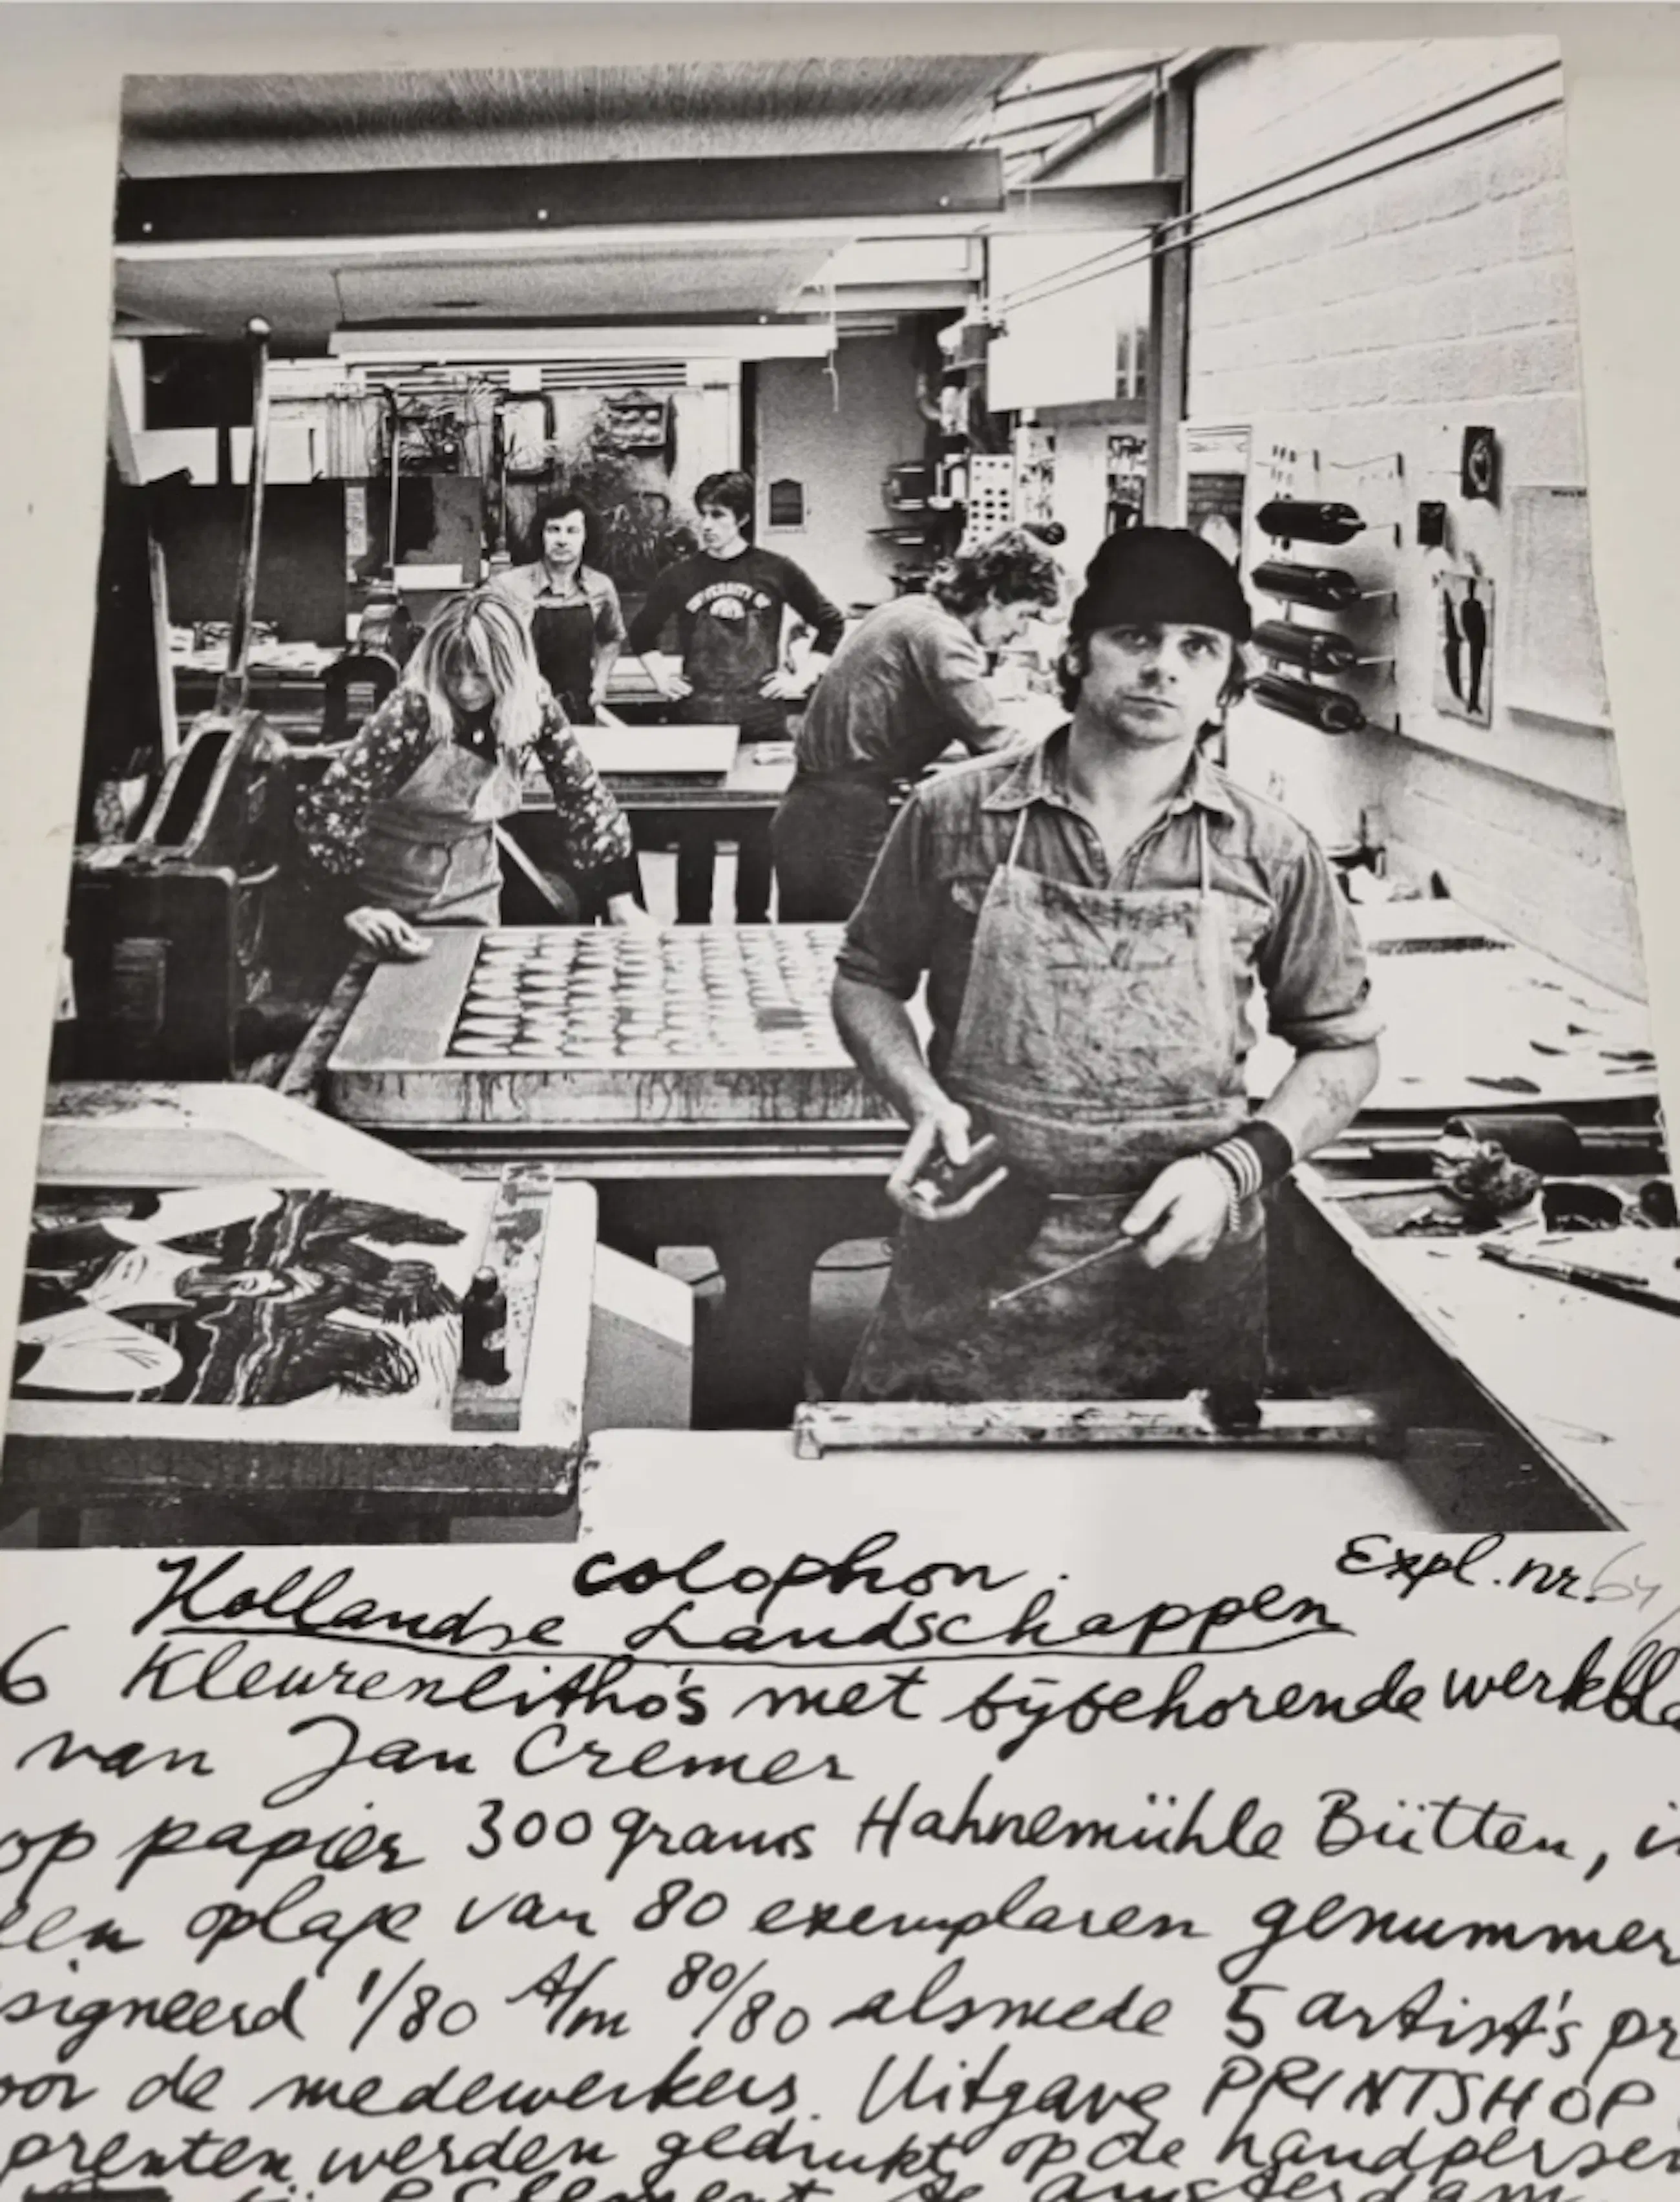 UNIVERSITY OF
colophon.
Expl. nr. 64/
Hollandse Landschappen
6 Kleurenlitho's met bijbehorende werkbla
van Jan Cremer
op papier 300 grams Hahnemühle Bütten, in
een oplage van 80 exemplaren genummer
signeerd 1/80 t/m 80/80 alsmede 5 artist's pr
oor de medewerkers. Uitgave PRINTSHOP
prenten werden gedrukt op de handpersen
bij P. Clement te Amsterdam